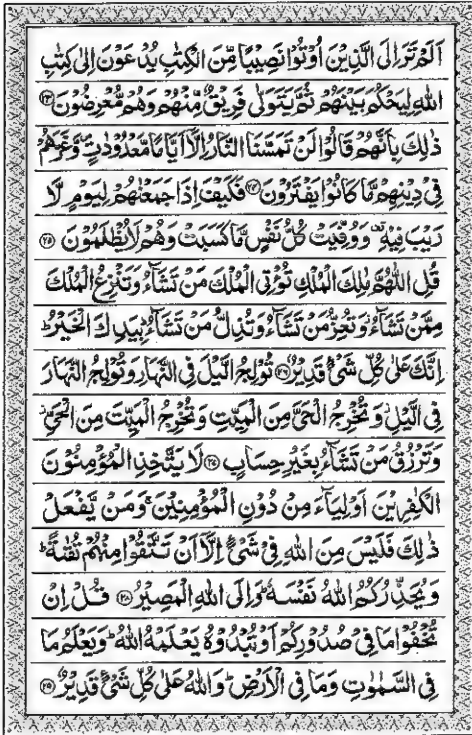 اَلَمْ تَرَ اِلَى الَّذِيْنَ اُوْتُوْا نَصِيْبًا مِّنَ الْكِتٰبِ يُدْعَوْنَ اِلٰى كِتٰبِ
اللهِ لِيَحْكُمَ بَيْنَهُمْ ثُمَّ يَتَوَلّٰى فَرِيْقٌ مِّنْهُمْ وَهُمْ مُّعْرِضُوْنَ ۝۲۳
ذٰلِكَ بِاَنَّهُمْ قَالُوْا لَنْ تَمَسَّنَا النَّارُ اِلَّاۤ اَيَّامًا مَّعْدُوْدٰتٍ ۪ وَّغَرَّهُمْ
فِيْ دِيْنِهِمْ مَّا كَانُوْا يَفْتَرُوْنَ ۝۲۴ فَكَيْفَ اِذَا جَمَعْنٰهُمْ لِيَوْمٍ لَّا
رَيْبَ فِيْهِ ۫ وَوُفِّيَتْ كُلُّ نَفْسٍ مَّا كَسَبَتْ وَهُمْ لَا يُظْلَمُوْنَ ۝۲۵
قُلِ اللّٰهُمَّ مٰلِكَ الْمُلْكِ تُؤْتِى الْمُلْكَ مَنْ تَشَآءُ وَتَنْزِعُ الْمُلْكَ
مِمَّنْ تَشَآءُ وَتُعِزُّ مَنْ تَشَآءُ وَتُذِلُّ مَنْ تَشَآءُ بِيَدِكَ الْخَيْرُ ؕ
اِنَّكَ عَلٰى كُلِّ شَیْءٍ قَدِيْرٌ ۝۲۶ تُوْلِجُ الَّيْلَ فِى النَّهَارِ وَتُوْلِجُ النَّهَارَ
فِى الَّيْلِ ؗ وَتُخْرِجُ الْحَىَّ مِنَ الْمَيِّتِ وَتُخْرِجُ الْمَيِّتَ مِنَ الْحَىِّ ؗ
وَتَرْزُقُ مَنْ تَشَآءُ بِغَيْرِ حِسَابٍ ۝۲۷ لَا يَتَّخِذِ الْمُؤْمِنُوْنَ
الْكٰفِرِيْنَ اَوْلِيَآءَ مِنْ دُوْنِ الْمُؤْمِنِيْنَ ۚ وَمَنْ يَّفْعَلْ
ذٰلِكَ فَلَيْسَ مِنَ اللهِ فِيْ شَیْءٍ اِلَّاۤ اَنْ تَتَّقُوْا مِنْهُمْ تُقٰىةً ؕ
وَيُحَذِّرُكُمُ اللهُ نَفْسَهٗ ؕ وَاِلَى اللهِ الْمَصِيْرُ ۝۲۸ قُلْ اِنْ
تُخْفُوْا مَا فِيْ صُدُوْرِكُمْ اَوْ تُبْدُوْهُ يَعْلَمْهُ اللهُ ؕ وَيَعْلَمُ مَا
فِى السَّمٰوٰتِ وَمَا فِى الْاَرْضِ ؕ وَاللهُ عَلٰى كُلِّ شَیْءٍ قَدِيْرٌ ۝۲۹